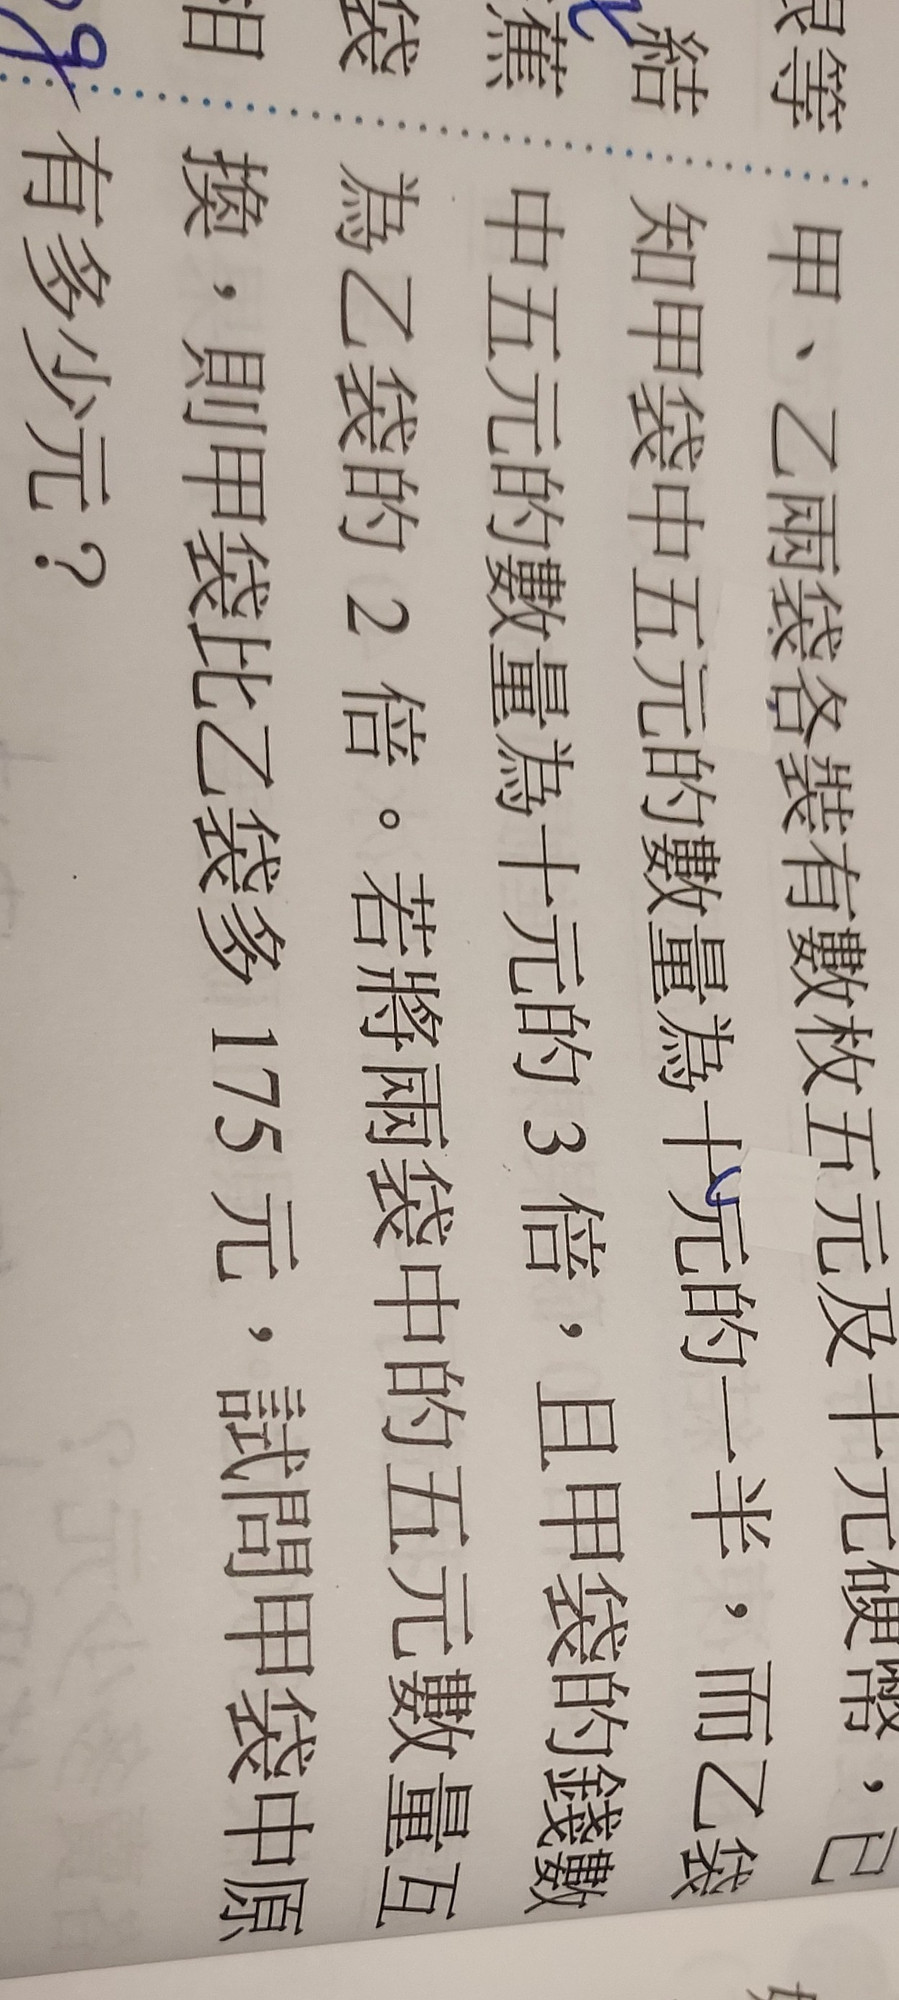 根等
結
蕉
袋
甲、乙兩袋各裝有數枚五元及十元硬幣，已
知甲袋中五元的數量為十元的一半，而乙袋
中五元的數量為十元的3倍，且甲袋的錢數
為乙袋的2倍。若將兩袋中的五元數量互
換，則甲袋比乙袋多175元，試問甲袋中原
有多少元？